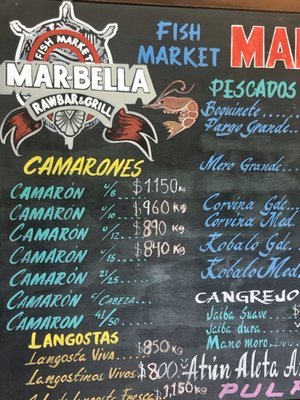 FISH MARKET
MARBELLA
RAWBAR & GRILL
FISH
MARKET
CAMARONES
CAMARÓN U/8... $1.150 KG
CAMARÓN U/10... $960 KG
CAMARÓN U/12... $890 KG
CAMARÓN U/15... $840 KG
CAMARÓN 21/25...
CAMARÓN C/CABEZA...
CAMARON 41/50...
LANGOSTAS
Langosta Viva... $850 KG
Langostinos Vivos... $800
$1,150 KG
PESCADOS
Boquinete...
Pargo Grande...
Mero Grande...
Corvina Gde...
Corvina Med.
Robalo Gde.
Robalo Med.
CANGREJO
Jaiba Suave... $
Jaiba dura...
Mano moro...
Atún Aleta